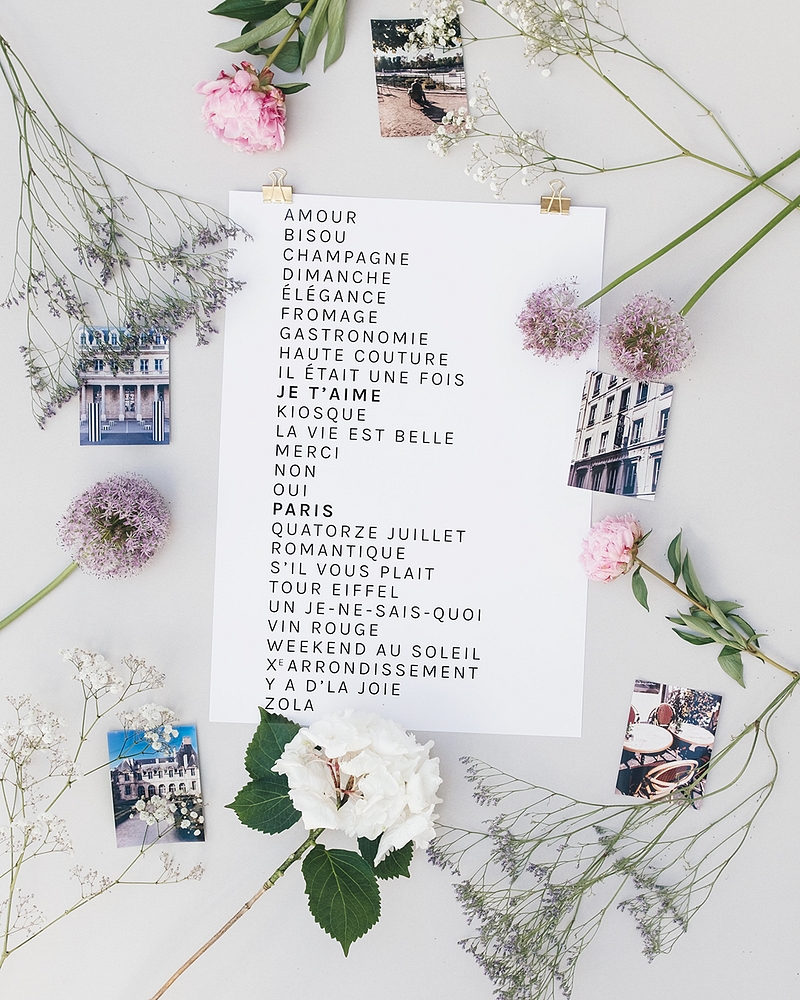 AMOUR
BISOU
CHAMPAGNE
DIMANCHE
ÉLÉGANCE
FROMAGE
GASTRONOMIE
HAUTE COUTURE
IL ÉTAIT UNE FOIS
JE T’AIME
KIOSQUE
LA VIE EST BELLE
MERCI
NON
OUI
PARIS
QUATORZE JUILLET
ROMANTIQUE
S’IL VOUS PLAIT
TOUR EIFFEL
UN JE-NE-SAIS-QUOI
VIN ROUGE
WEEKEND AU SOLEIL
Xᴱ ARRONDISSEMENT
Y A D’LA JOIE
ZOLA